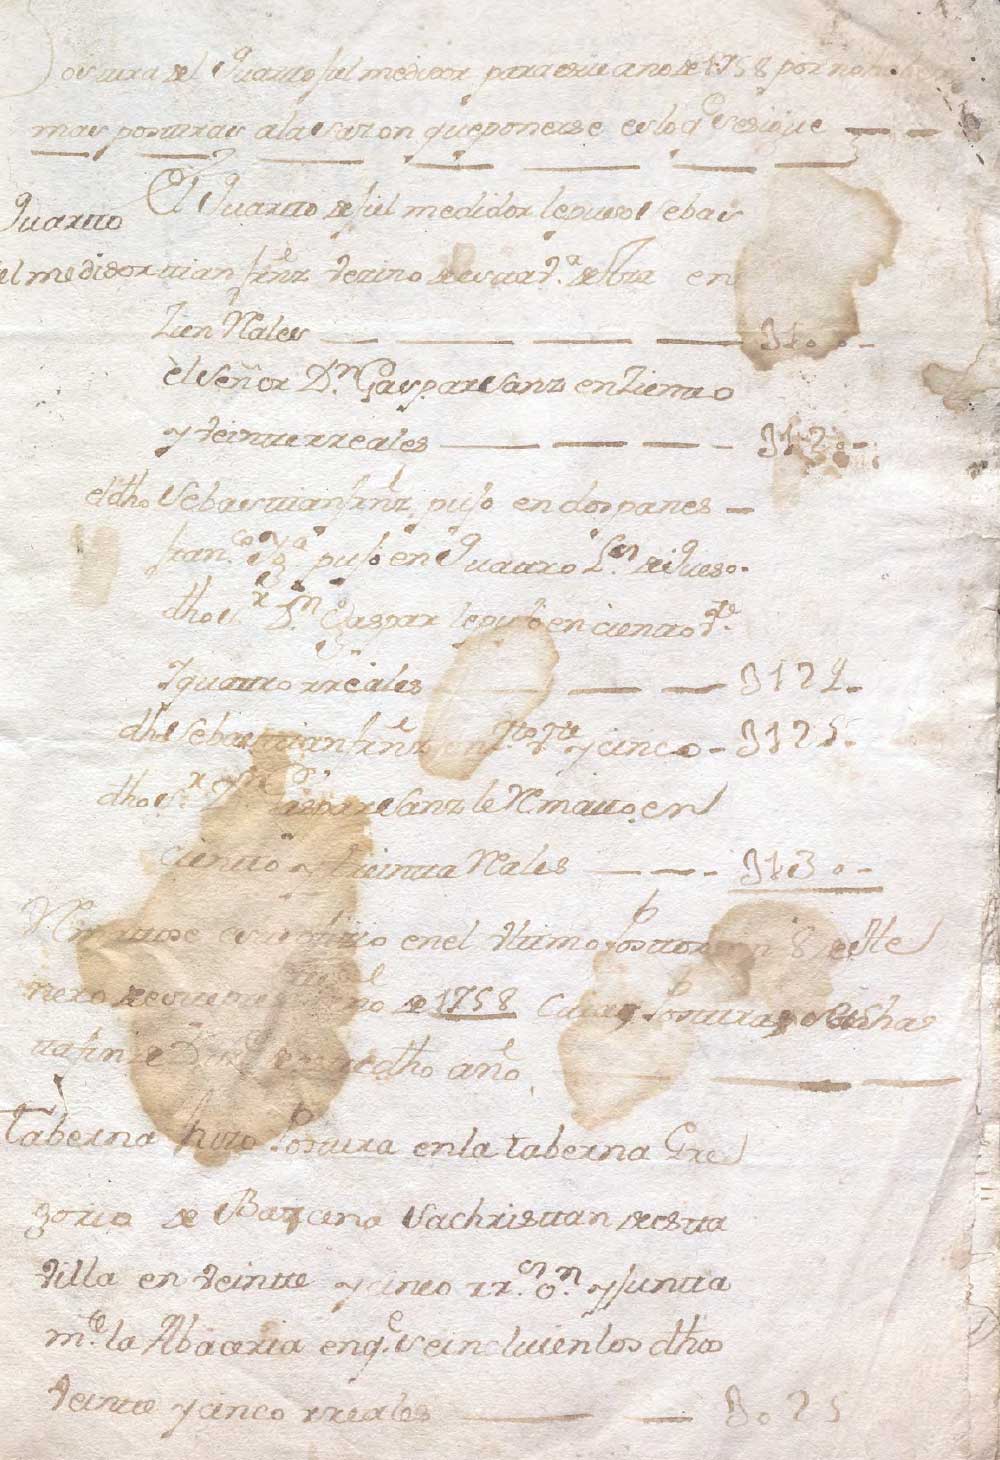 Postura del Quarto fiel medidor para este año de 1758 por no
mas posturas a la sazon que ponerse es lo q.e se sigue
Quarto El Quarto de fiel medidor le puso Sebas
el medidor tian frnz vezino de esta v.a de en
Zien Rales 310.
el señor D.n Gaspar Sanz en Ziento
y veinte rreales 3120
el dho Sebastian frnz puso en dos panes
fran.co puso en Quatro de Queso.
dho s.r D.n Gaspar le puso en ciento v.te
y quatro rreales 3124
dho Sebastian frnz en z.to v.te y cinco 3125
dho s.r D.n Gaspar Sanz le Remato en
ciento y treinta Rales 3130
Rematose en el ultimo Postor en 8 de He
nero de este año de 1758 Cuias Posturas son has
ta fin de de este dho año
Taberna hizo Postura en la taberna Gre
gorio de Barcena Sachristan de esta
villa en veinte y cinco rr.s v.n y junta
m.te la Abaceria en q.e se incluien los dhos
veinte y cinco rreales 3025